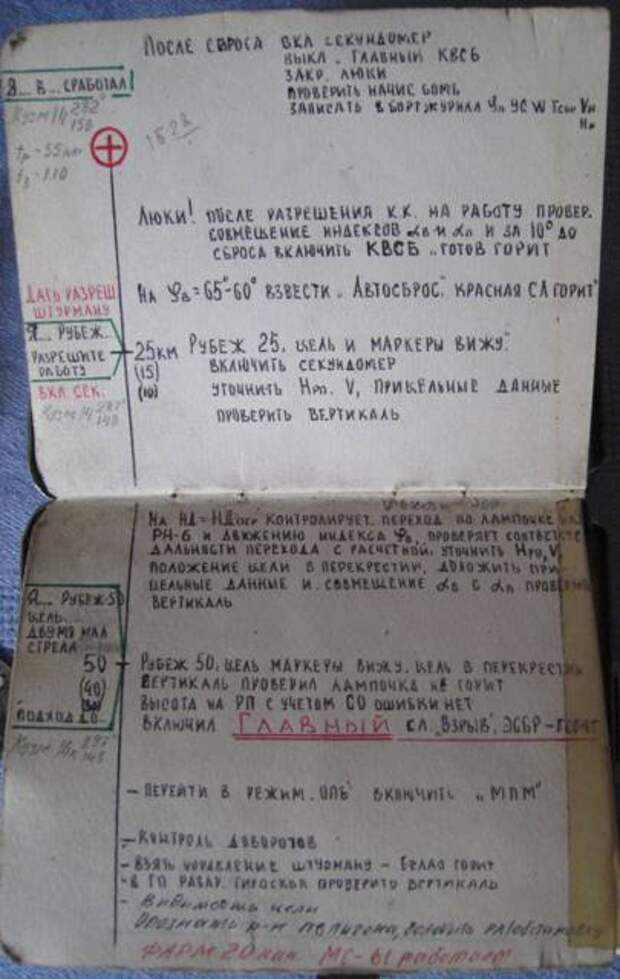 ПОСЛЕ СБРОСА ВКЛ СЕКУНДОМЕР
ВЫКЛ. ГЛАВНЫЙ КВСБ
ЗАКР. ЛЮКИ
ПРОВЕРИТЬ НАЧИЕ БОМБ
ЗАПИСАТЬ В БОРТЖУРНАЛ
Я... В... СРАБОТАЛ
ЛЮКИ! ПОСЛЕ РАЗРЕШЕНИЯ К.К. НА РАБОТУ ПРОВЕР.
СОВМЕЩЕНИЕ ИНДЕКСОВ αв И αп И ЗА 10° ДО
СБРОСА ВКЛЮЧИТЬ КВСБ „ГОТОВ ГОРИТ
НА φв = 65°-60° ВЗВЕСТИ „АВТОСБРОС" КРАСНАЯ СЛ ГОРИТ"
ДАТЬ РАЗРЕШ
ШТУРМАНУ
Я... РУБЕЖ...
РАЗРЕШИТЕ
РАБОТУ
ВКЛ. СЕК.
25КМ РУБЕЖ 25, ЦЕЛЬ И МАРКЕРЫ ВИЖУ.
(15) ВКЛЮЧИТЬ СЕКУНДОМЕР
(10) УТОЧНИТЬ Нрп. V, ПРИЦЕЛЬНЫЕ ДАННЫЕ
ПРОВЕРИТЬ ВЕРТИКАЛЬ
НА НД = НДпер КОНТРОЛИРУЕТ ПЕРЕХОД ПО ЛАМПОЧКЕ
РН-6 И ДВИЖЕНИЮ ИНДЕКСА φв, ПРОВЕРЯЕТ СООТВЕТС
ДАЛЬНОСТИ ПЕРЕХОДА С РАСЧЕТНОЙ. УТОЧНИТЬ Нрп, V,
ПОЛОЖЕНИЕ ЦЕЛИ В ПЕРЕКРЕСТИИ, ДОЛОЖИТЬ ПРИ
ЦЕЛЬНЫЕ ДАННЫЕ И СОВМЕЩЕНИЕ αв С αп ПРОВЕРИ
ВЕРТИКАЛЬ
Я... РУБЕЖ-50
ЦЕЛЬ...
ДВУМЯ МАЛ
СТРЕЛА
50 РУБЕЖ 50, ЦЕЛЬ МАРКЕРЫ ВИЖУ. ЦЕЛЬ В ПЕРЕКРЕСТИИ
(40) ВЕРТИКАЛЬ ПРОВЕРИЛ ЛАМПОЧКА НЕ ГОРИТ
ВЫСОТА НА РП С УЧЕТОМ СО ОШИБКИ НЕТ
ПОДХОД
ВКЛЮЧИЛ ГЛАВНЫЙ СЛ. „ВЗРЫВ", ЭСБР -
- ПЕРЕЙТИ В РЕЖИМ „ОПБ" ВКЛЮЧИТЬ „МПМ"
- КОНТРОЛЬ ДОВОРОТОВ
- ВЗЯТЬ УПРАВЛЕНИЕ ШТУРМАНУ - БЕЛАЯ ГОРИТ
- В ГП РАЗАР. ГИРОСКОП ПРОВЕРИТЬ ВЕРТИКАЛЬ
- Видимость цели
Опознать р-н полигона,
ФАРМ 20 мин МС-61 работает